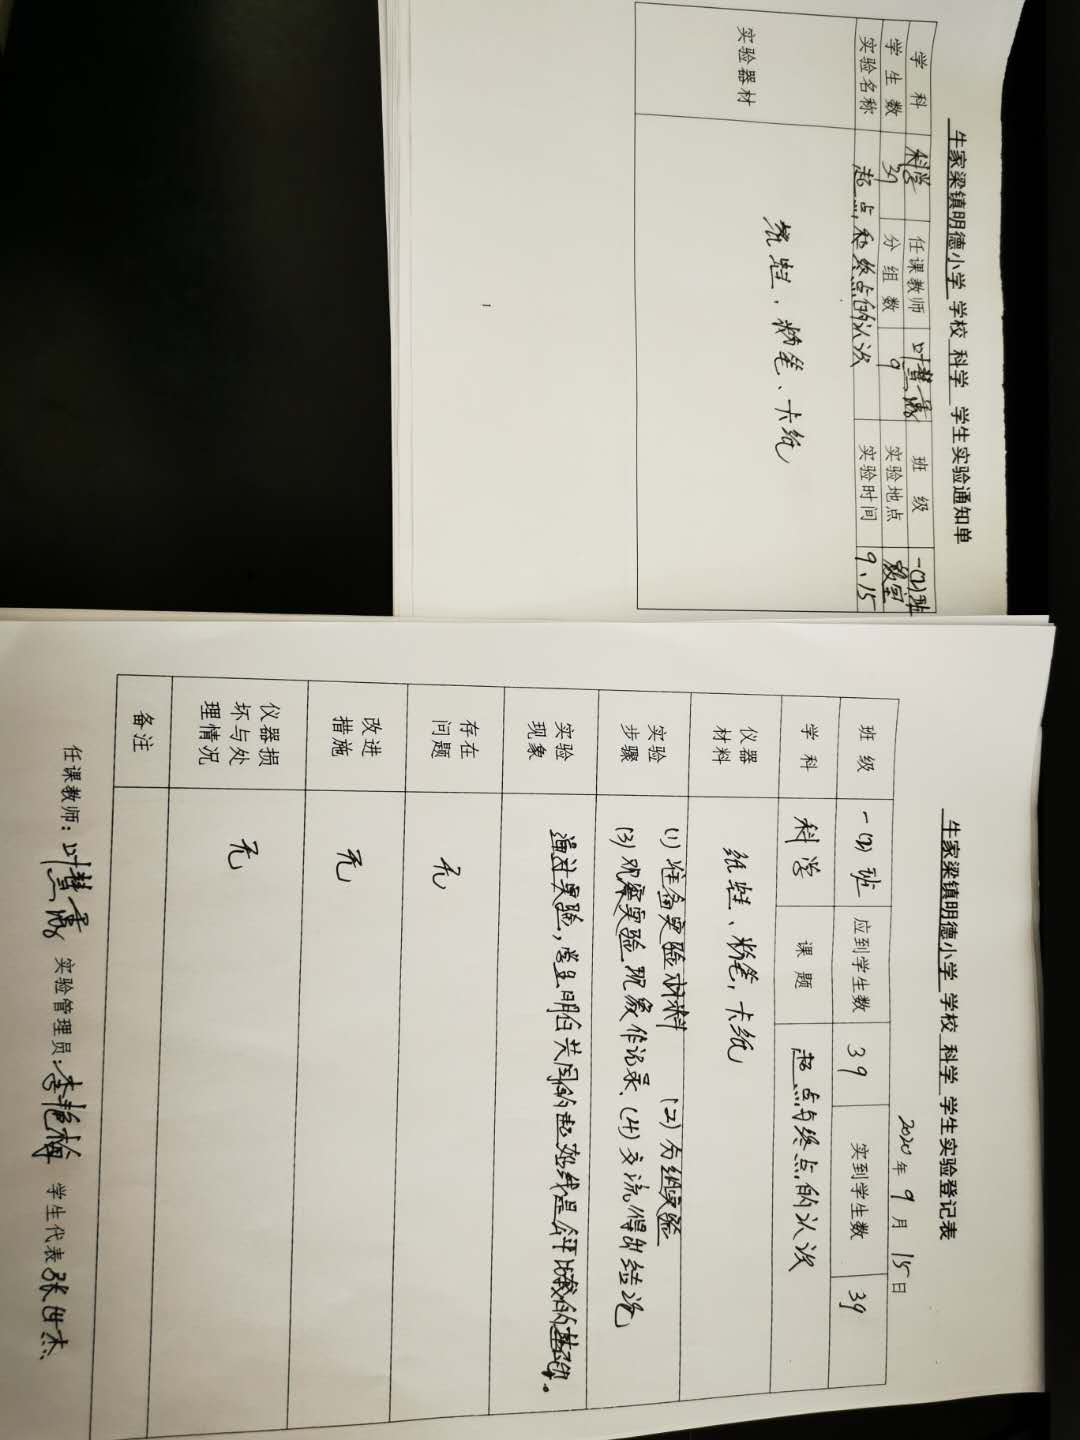 牛家梁镇明德小学 学校 科学 学生实验通知单
学 科 科学 任课教师 叶慧霞 班 级 一(2)班
学 生 数 39 分 组 数 9 实验地点 教室
实验名称 起点和终点的认次 实验时间 9、15
实验器材 纸蛙、粉笔、卡纸
1
牛家梁镇明德小学 学校 科学 学生实验登记表
2020年 9月 15日
班 级 一(2)班 应到学生数 39 实到学生数 39
学 科 科学 课 题 起点与终点的认次
仪器材料 纸蛙、粉笔、卡纸
实验步骤 (1)准备实验材料 (2)分组实验
(3)观察实验现象作记录.(4)交流得出结论
实验现象 通过实验,学生明白共同的起始线是公平比较的基础.
存在问题 无
改进措施 无
仪器损坏与处理情况 无
备注
任课教师:叶慧霞 实验管理员:李艳梅 学生代表 张世杰